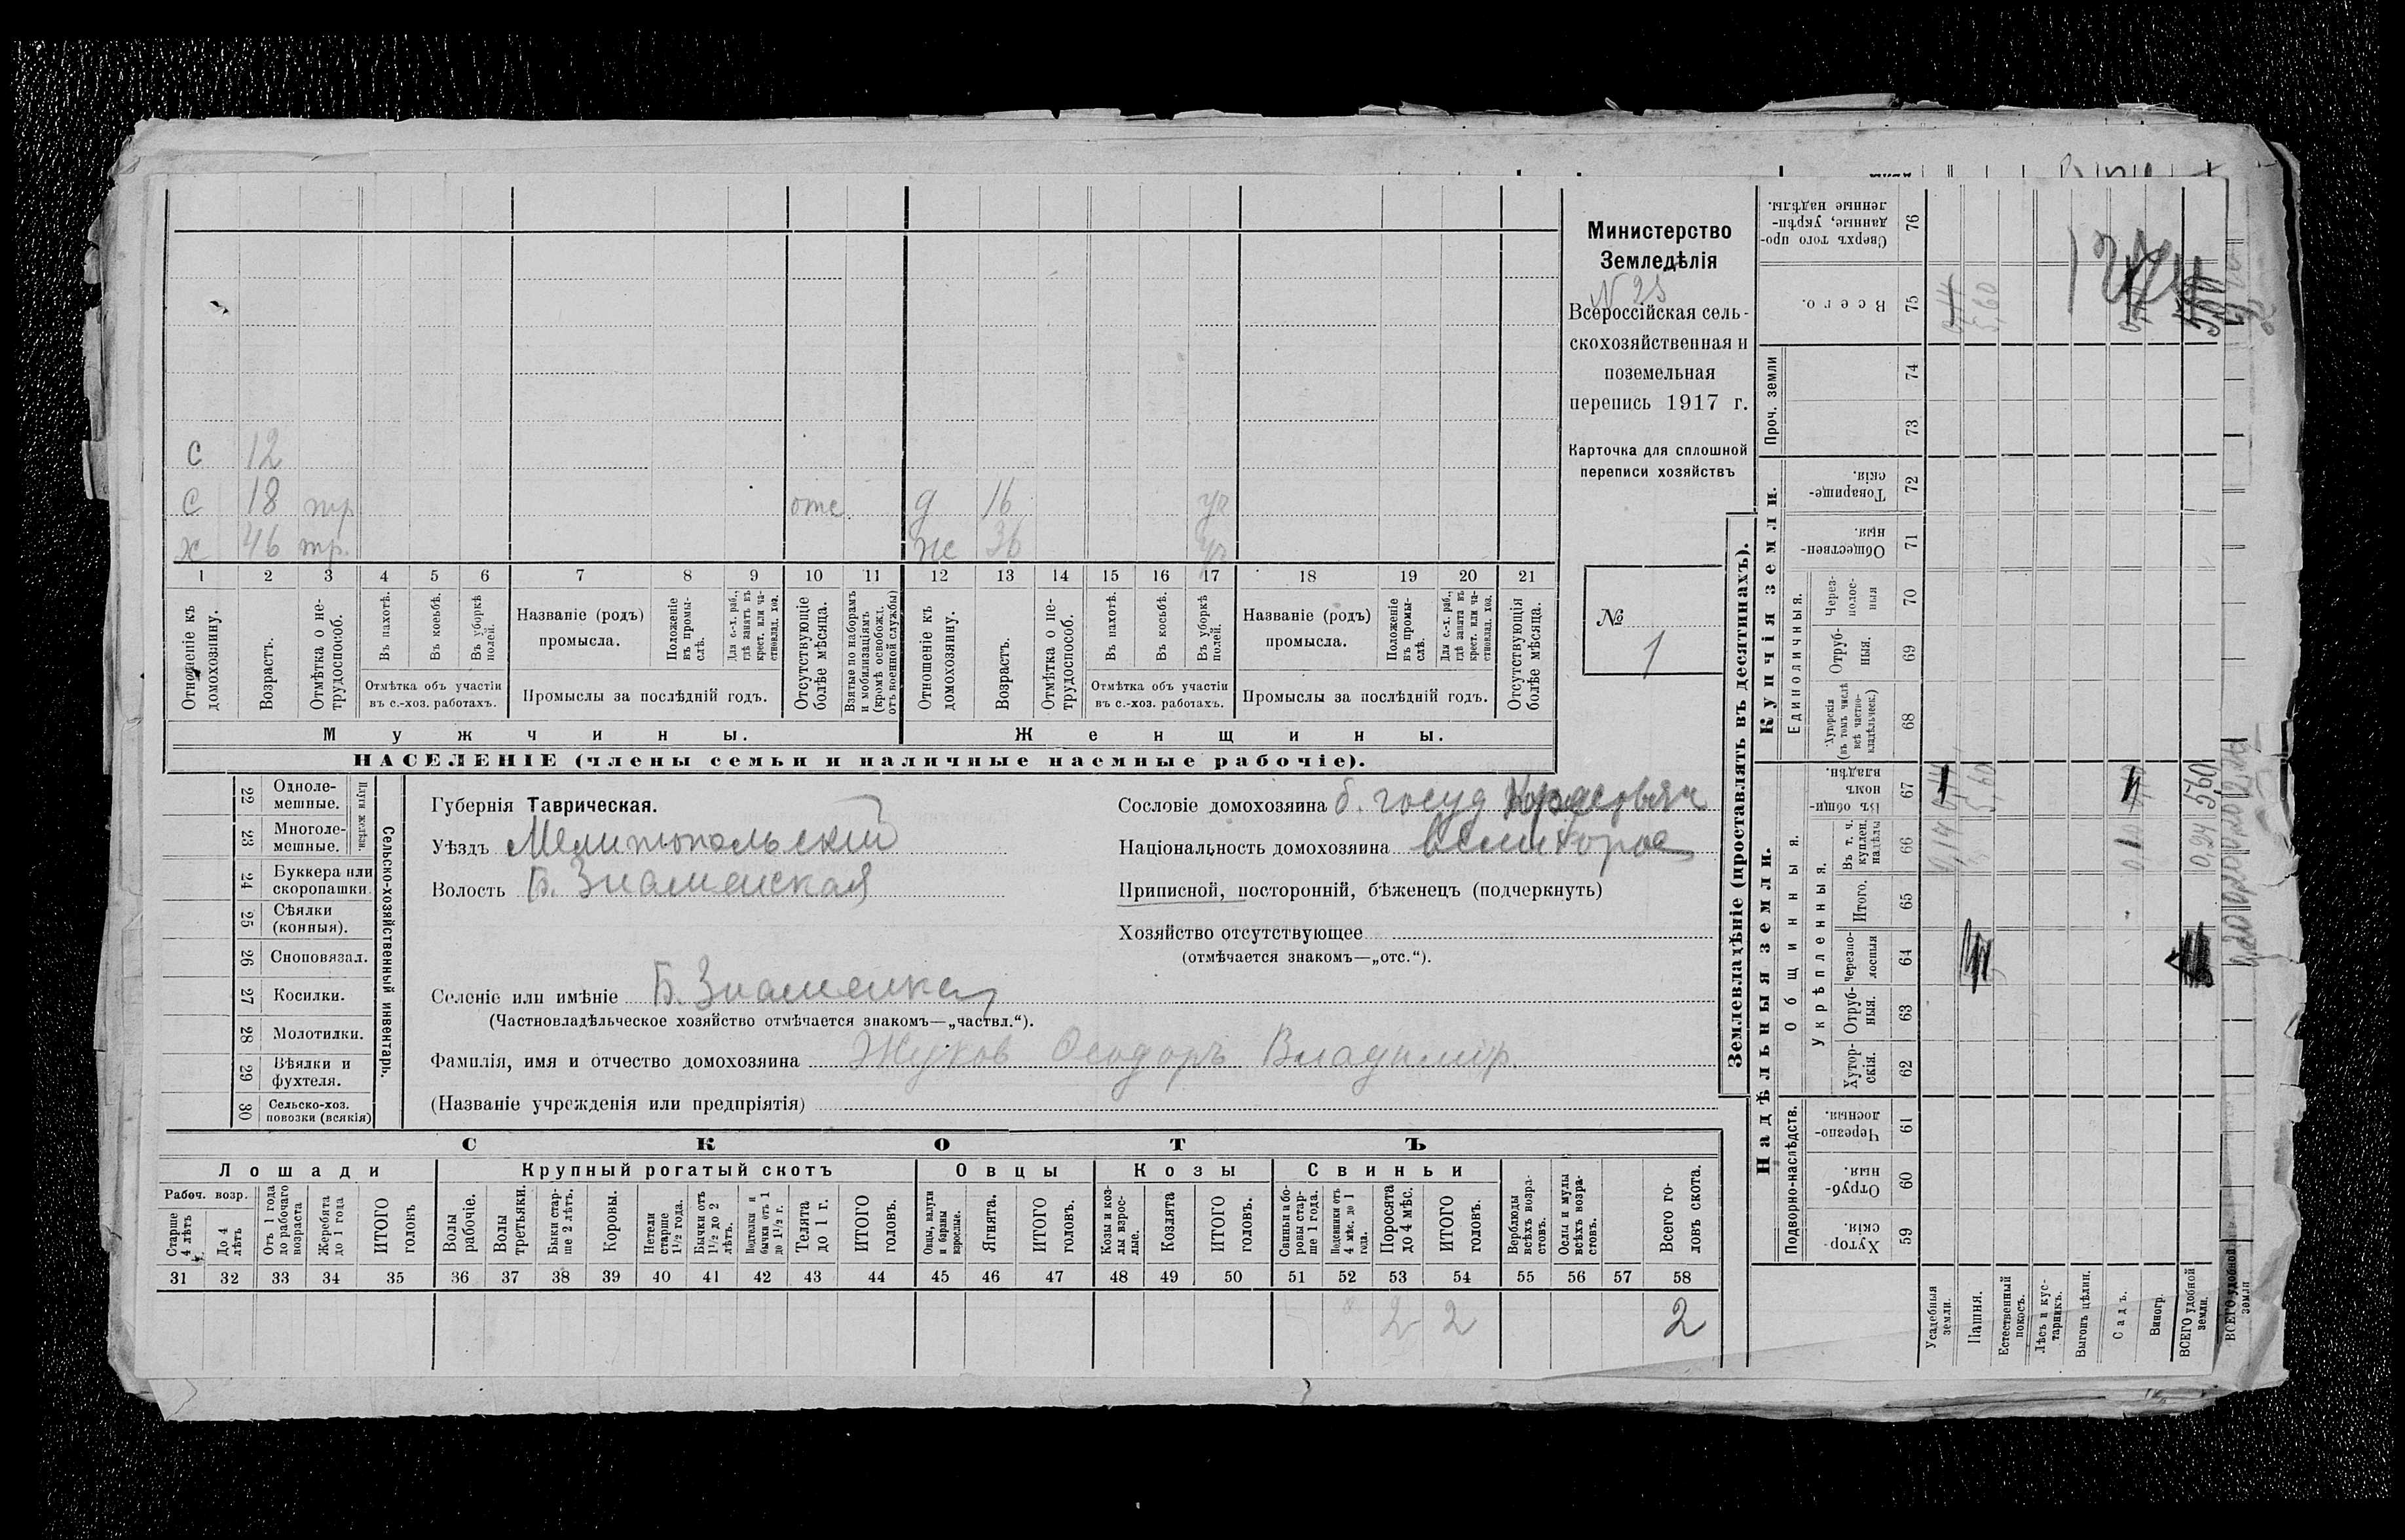 с 12
с 18 тр отс. д 16 уч
х 46 тр. ж 36 уч
1 2 3 4 5 6 7 8 9 10 11 12 13 14 15 16 17 18 19 20 21
Отношеніе къ домохозяину.
Возрастъ.
Отмѣтка о не-
трудоспособ.
Въ пахотѣ.
Въ косьбѣ.
Въ уборкѣ
полей.
Отмѣтка объ участіи
въ с.-хоз. работахъ.
Названіе (родъ)
промысла.
Положеніе
въ промы-
слѣ.
Для с.-х. раб.,
гдѣ занятъ въ
крест. или ча-
стновлад. хоз.
Промыслы за послѣдній годъ.
Отсутствующіе
болѣе мѣсяца.
Взятые по наборамъ
и мобилизаціямъ
(кромѣ освобожд.
отъ военной службы)
Отношеніе къ
домохозяину.
Возрастъ.
Отмѣтка о не-
трудоспособ.
Въ пахотѣ.
Въ косьбѣ.
Въ уборкѣ
полей.
Отмѣтка объ участіи
въ с.-хоз. работахъ.
Названіе (родъ)
промысла.
Положеніе
въ промы-
слѣ.
Для с.-х. раб.,
гдѣ занята въ
крест. или ча-
стновлад. хоз.
Промыслы за послѣдній годъ.
Отсутствующія
болѣе мѣсяца.
Мужчины. Женщины.
НАСЕЛЕНІЕ (члены семьи и наличные наемные рабочіе).
Министерство
Земледѣлія
N 25
Всероссійская сель-
скохозяйственная и
поземельная
перепись 1917 г.
Карточка для сплошной
переписи хозяйствъ
№
1
Сельско-хозяйственный инвентарь.
Плуги желѣзн.
22 Одноле-
мешные.
23 Многоле-
мешные.
24 Буккера или
скоропашки.
25 Сѣялки
(конныя).
26 Сноповязал.
27 Косилки.
28 Молотилки.
29 Вѣялки и
фухтеля.
30 Сельско-хоз.
повозки (всякія)
Губернія Таврическая.
Уѣздъ Мелитопольскій
Волость Б. Знаменская
Селеніе или имѣніе Б. Знаменка
(Частновладѣльческое хозяйство отмѣчается знакомъ—„частвл.“).
Фамилія, имя и отчество домохозяина Жуков Феодоръ Владимір.
(Названіе учрежденія или предпріятія)
Сословіе домохозяина б. госуд
Національность домохозяина великорос
Приписной, посторонній, бѣженецъ (подчеркнуть)
Хозяйство отсутствующее
(отмѣчается знакомъ—„отс.“).
СКОТЪ
Лошади Крупный рогатый скотъ Овцы Козы Свиньи
Рабоч. возр.
Старше
4 лѣтъ
До 4
лѣтъ
Отъ 1 года
до рабочаго
возраста
Жеребята
до 1 года
ИТОГО
головъ
Волы
рабочіе.
Волы
третьяки.
Быки стар-
ше 2 лѣтъ.
Коровы.
Нетели
старше
1½ года.
Бычки отъ
1½ до 2
лѣтъ.
Подтелки и
бычки отъ 1
до 1½ г.
Телята
до 1 г.
ИТОГО
головъ.
Овцы, валухи
и бараны
взрослые.
Ягнята.
ИТОГО
головъ.
Козы и коз-
лы взрос-
лые.
Козлята
ИТОГО
головъ.
Свиньи и бо-
ровы стар-
ше 1 года.
Подсвинки отъ
4 мѣс. до 1
года.
Поросята
до 4 мѣс.
ИТОГО
головъ.
Верблюды
всѣхъ возра-
стовъ.
Ослы и мулы
всѣхъ возра-
стовъ.
Всего го-
ловъ скота.
31 32 33 34 35 36 37 38 39 40 41 42 43 44 45 46 47 48 49 50 51 52 53 54 55 56 57 58
2 2 2
Землевладѣніе (проставлять въ десятинахъ).
Надѣльныя земли.
Купчія земли.
Проч. земли
Подворно-наслѣдств.
Общинныя.
Укрѣпленныя.
Единоличныя.
Хутор-
скія. 59
Отруб-
ныя. 60
Черезпо-
лосныя. 61
Хутор-
скія. 62
Отруб-
ныя. 63
Черезпо-
лосныя 64
Итого. 65
Въ т. ч.
куплен.
надѣлы 66
Въ общин-
номъ
владѣн. 67
Хуторскія
(въ томъ числѣ
всѣ частно-
владѣльческ.) 68
Отруб-
ныя. 69
Через-
полос-
ныя 70
Обществен-
ныя. 71
Товарище-
скія. 72
73
74
Всего. 75
Сверхъ того про-
данные, укрѣп-
ленные надѣлы. 76
Усадебныя
земли.
0,14
Пашня.
5,60
5,60
Естественный
покосъ.
Лѣсъ и кус-
тарникъ.
Выгонъ цѣлин.
Садъ.
Виногр.
ВСЕГО удобной
земли.
0,24 5,60
ВСЕГО удобной
земли